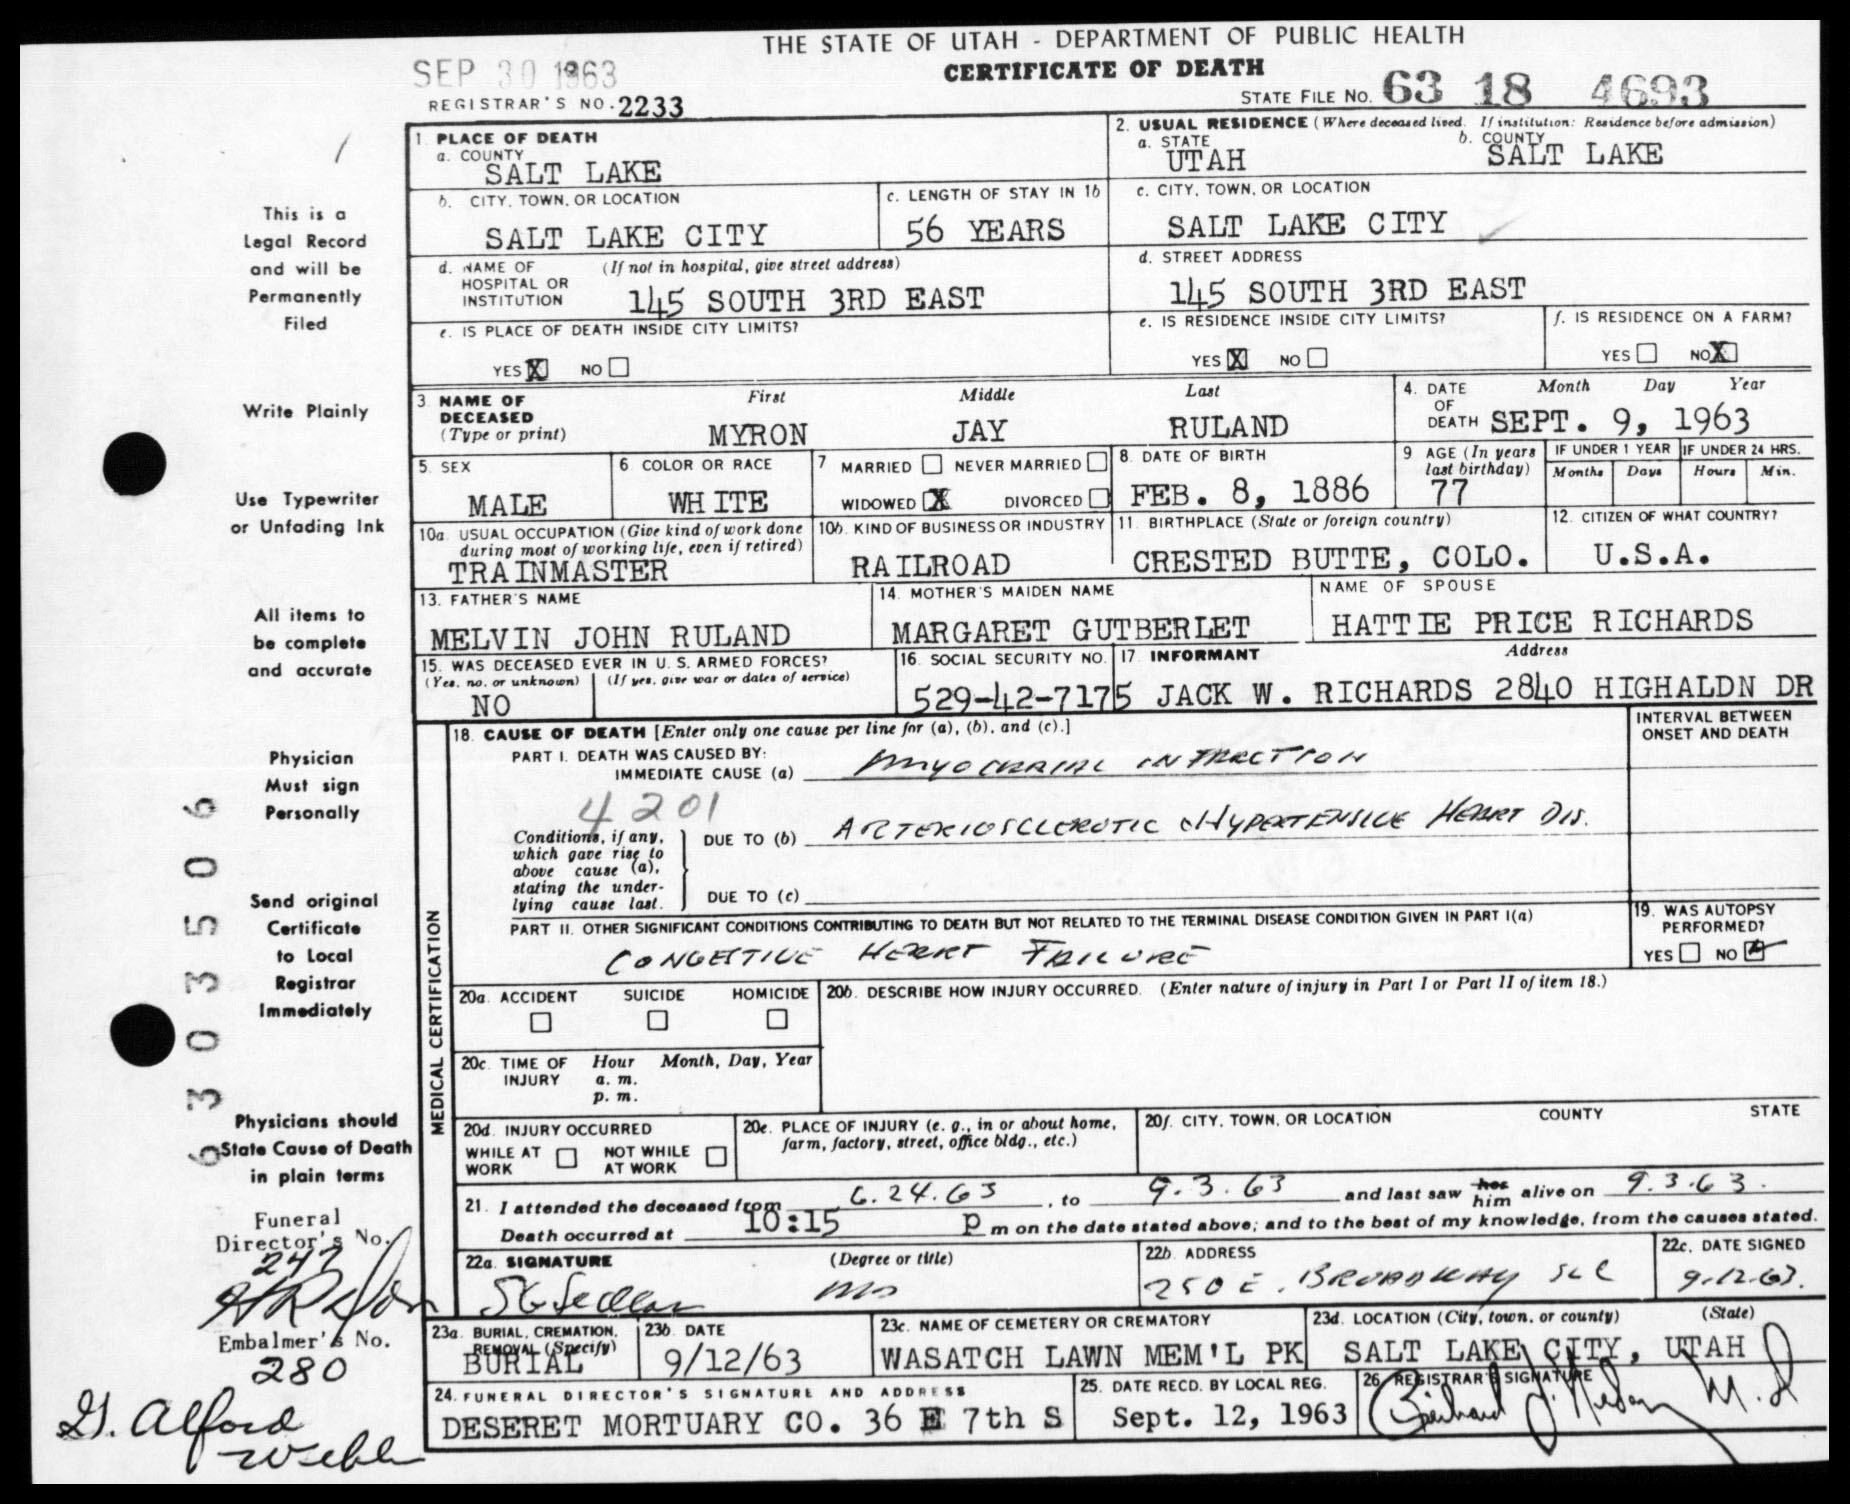 THE STATE OF UTAH - DEPARTMENT OF PUBLIC HEALTH
SEP 30 1963
CERTIFICATE OF DEATH
REGISTRAR'S NO. 2233
STATE FILE NO. 63 18 4693
1. PLACE OF DEATH
a. COUNTY
SALT LAKE
2. USUAL RESIDENCE (Where deceased lived. If institution: Residence before admission)
a. STATE
UTAH
b. COUNTY
SALT LAKE
b. CITY, TOWN, OR LOCATION
SALT LAKE CITY
c. LENGTH OF STAY IN 1b
56 YEARS
c. CITY, TOWN, OR LOCATION
SALT LAKE CITY
d. NAME OF HOSPITAL OR INSTITUTION (If not in hospital, give street address)
145 SOUTH 3RD EAST
d. STREET ADDRESS
145 SOUTH 3RD EAST
e. IS PLACE OF DEATH INSIDE CITY LIMITS?
YES X NO
e. IS RESIDENCE INSIDE CITY LIMITS?
YES X NO
f. IS RESIDENCE ON A FARM?
YES NO X
3. NAME OF DECEASED (Type or print)
First Middle Last
MYRON JAY RULAND
4. DATE OF DEATH
Month Day Year
SEPT. 9, 1963
5. SEX
MALE
6. COLOR OR RACE
WHITE
7 MARRIED NEVER MARRIED
WIDOWED X DIVORCED
8. DATE OF BIRTH
FEB. 8, 1886
9 AGE (In years last birthday)
77
IF UNDER 1 YEAR
Months Days
IF UNDER 24 HRS.
Hours Min.
10a. USUAL OCCUPATION (Give kind of work done during most of working life, even if retired)
TRAINMASTER
10b. KIND OF BUSINESS OR INDUSTRY
RAILROAD
11. BIRTHPLACE (State or foreign country)
CRESTED BUTTE, COLO.
12. CITIZEN OF WHAT COUNTRY?
U.S.A.
13. FATHER'S NAME
MELVIN JOHN RULAND
14. MOTHER'S MAIDEN NAME
MARGARET GUTBERLET
NAME OF SPOUSE
HATTIE PRICE RICHARDS
15. WAS DECEASED EVER IN U. S. ARMED FORCES?
(Yes, no, or unknown) (If yes, give war or dates of service)
NO
16. SOCIAL SECURITY NO.
529-42-7175
17. INFORMANT Address
JACK W. RICHARDS 2840 HIGHALDN DR
MEDICAL CERTIFICATION
18. CAUSE OF DEATH [Enter only one cause per line for (a), (b), and (c).]
INTERVAL BETWEEN ONSET AND DEATH
PART I. DEATH WAS CAUSED BY:
IMMEDIATE CAUSE (a) MYOCRAIAL INFRACTION
4201
Conditions, if any, which gave rise to above cause (a), stating the underlying cause last.
DUE TO (b) ARTERIOSCLEROTIC & HYPERTENSIVE HEART DIS.
DUE TO (c)
PART II. OTHER SIGNIFICANT CONDITIONS CONTRIBUTING TO DEATH BUT NOT RELATED TO THE TERMINAL DISEASE CONDITION GIVEN IN PART I(a)
CONGESTIVE HEART FAILURE
19. WAS AUTOPSY PERFORMED?
YES NO X
20a. ACCIDENT SUICIDE HOMICIDE
20b. DESCRIBE HOW INJURY OCCURRED. (Enter nature of injury in Part I or Part II of item 18.)
20c. TIME OF INJURY Hour Month, Day, Year
a. m.
p. m.
20d. INJURY OCCURRED
WHILE AT WORK NOT WHILE AT WORK
20e. PLACE OF INJURY (e. g., in or about home, farm, factory, street, office bldg., etc.)
20f. CITY, TOWN, OR LOCATION COUNTY STATE
21. I attended the deceased from 6.24.63, to 9.3.63 and last saw her him alive on 9.3.63.
Death occurred at 10:15 P m on the date stated above; and to the best of my knowledge, from the causes stated.
22a. SIGNATURE (Degree or title)
MD
22b. ADDRESS
250 E. BROADWAY SLC
22c. DATE SIGNED
9.12.63.
23a. BURIAL, CREMATION, REMOVAL (Specify)
BURIAL
23b. DATE
9/12/63
23c. NAME OF CEMETERY OR CREMATORY
WASATCH LAWN MEM'L PK
23d. LOCATION (City, town, or county) (State)
SALT LAKE CITY, UTAH
24. FUNERAL DIRECTOR'S SIGNATURE AND ADDRESS
DESERET MORTUARY CO. 36 E 7th S
25. DATE RECD. BY LOCAL REG.
Sept. 12, 1963
26. REGISTRAR'S SIGNATURE
M.D
This is a
Legal Record
and will be
Permanently
Filed
Write Plainly
Use Typewriter
or Unfading Ink
All items to
be complete
and accurate
Physician
Must sign
Personally
Send original
Certificate
to Local
Registrar
Immediately
Physicians should
State Cause of Death
in plain terms
Funeral
Director's No.
247
Embalmer's No.
280
G. Alford
6303506